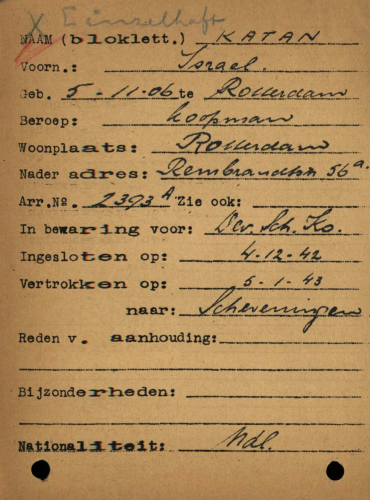 X Einzelhaft
NAAM (bloklett.) KATAN
Voorn.: Israel.
Geb. 5-11-06 te Rotterdam
Beroep: koopman
Woonplaats: Rotterdam
Nader adres: Rembrandtstr 56a.
Arr.No. 2393A Zie ook:
In bewaring voor: Dev. Sch. Ko.
Ingesloten op: 4-12-42
Vertrokken op: 5-1-43
naar: Scheveningen
Reden v. aanhouding:
Bijzonderheden:
Nationaliteit: Ndl.